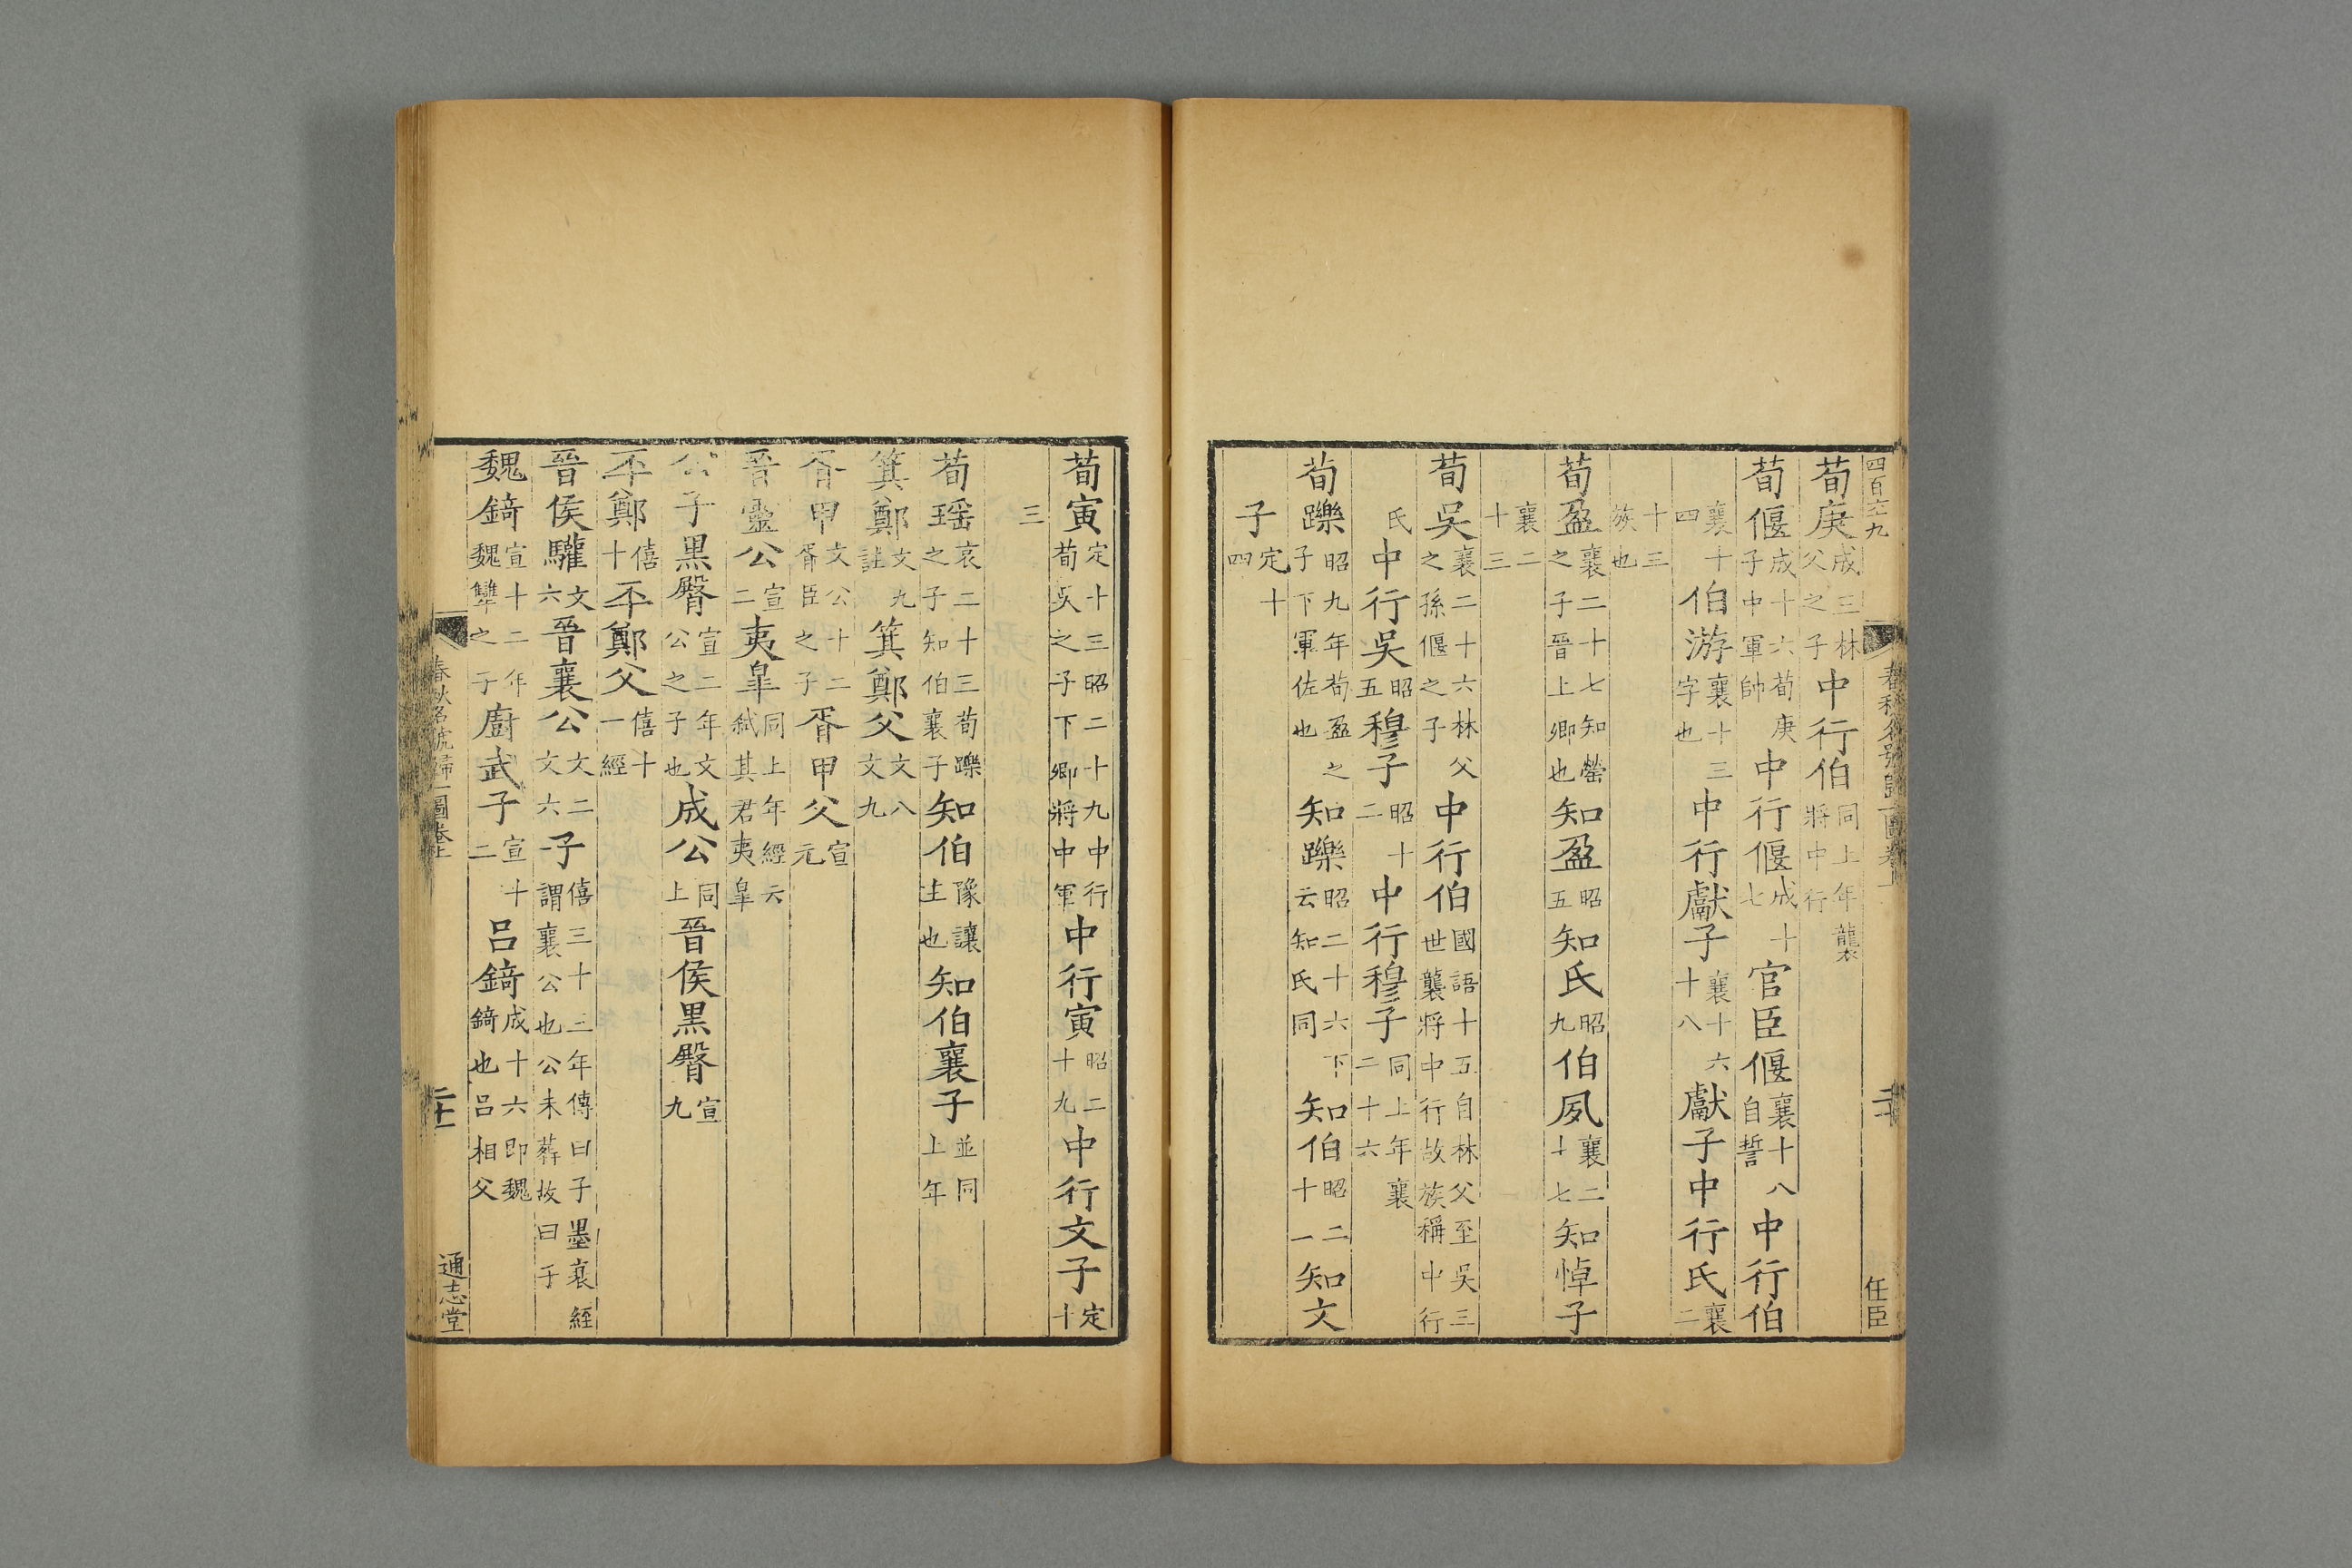 四百六九
春秋名號歸一圖卷上
二十
任臣
荀庚成三林父之子中行伯同上年襲將中行
荀偃成十六荀庚子中軍帥中行偃成十七官臣偃襄十八自誓中行伯
襄十四伯游襄十三字也中行獻子襄十六十八獻子中行氏襄二
十三族也
荀盈襄二十七知罃之子晉上卿也知盈昭五知氏昭九伯夙襄二十七知悼子
襄二十三
荀吳襄二十六林父之孫偃之子中行伯國語十五自林父至吳三世襲將中行故族稱中行
氏中行吳昭五穆子昭十二中行穆子同上年襄二十六
荀躒昭九年荀盈之子下軍佐也知躒昭二十六下云知氏同知伯昭二十一知文
子定十四
荀寅定十三昭二十九中行荀吳之子下卿將中軍中行寅昭二十九中行文子定十
三
荀瑶哀二十三荀躒之子知伯襄子知伯豫讓主也知伯襄子並同上年
箕鄭文九註箕鄭父文八文九
胥甲文公十二胥臣之子胥甲父宣元
晉靈公宣二夷皐同上年經云弑其君夷皐
公子黑臀宣二年文公之子也成公同上晉侯黑臀宣九
丕鄭僖十丕鄭父僖十一經
晉侯驩文六晉襄公文二文六子僖三十三年傳曰子墨衰絰謂襄公也公未葬故曰子
魏錡宣十二年魏犨之子廚武子宣十二呂錡成十六即魏錡也呂相父
春秋名號歸一圖卷上
二十一
通志堂